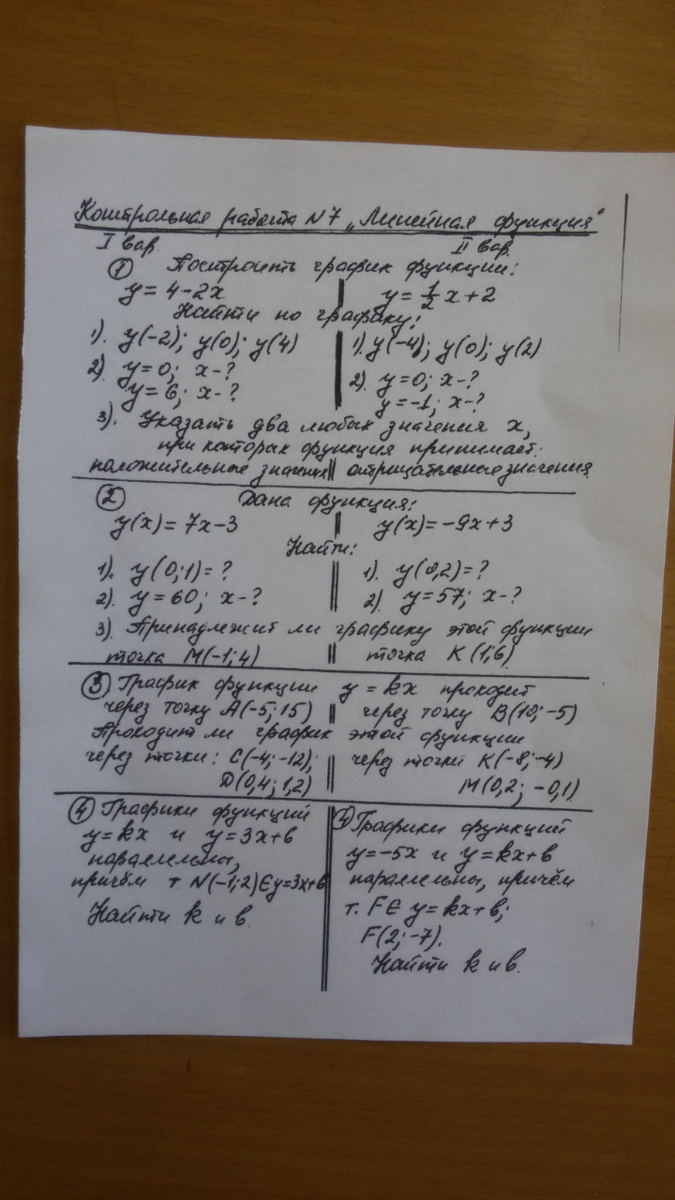 Контрольная работа N7 „Линейная функция"
I вар. II вар.
① Построить график функции:
y = 4 - 2x y = 1/2 x + 2
Найти по графику:
1). y(-2); y(0); y(4) 1). y(-4); y(0); y(2)
2). y = 0; x - ? 2). y = 0; x - ?
y = 6; x - ? y = -1; x - ?
3). Указать два любых значения x,
при которых функция принимает:
положительные значения отрицательные значения
② Дана функция:
y(x) = 7x - 3 y(x) = -9x + 3
Найти:
1). y(0;1) = ? 1). y(0,2) = ?
2). y = 60; x - ? 2). y = 57; x - ?
3). Принадлежит ли графику этой функции
точка M(-1;4) точка K(1;6)
③ График функции y = kx проходит
через точку A(-5;15) через точку B(10;-5)
Проходит ли график этой функции
через точки: C(-4;-12); через точки K(-8;-4)
D(0,4;1,2) M(0,2; -0,1)
④ Графики функций
y = kx и y = 3x + b
параллельны,
причём т N(-1;2) ∈ y = 3x + b
Найти k и b.
④ Графики функций
y = -5x и y = kx + b
параллельны, причём
т. F ∈ y = kx + b;
F(2;-7).
Найти k и b.